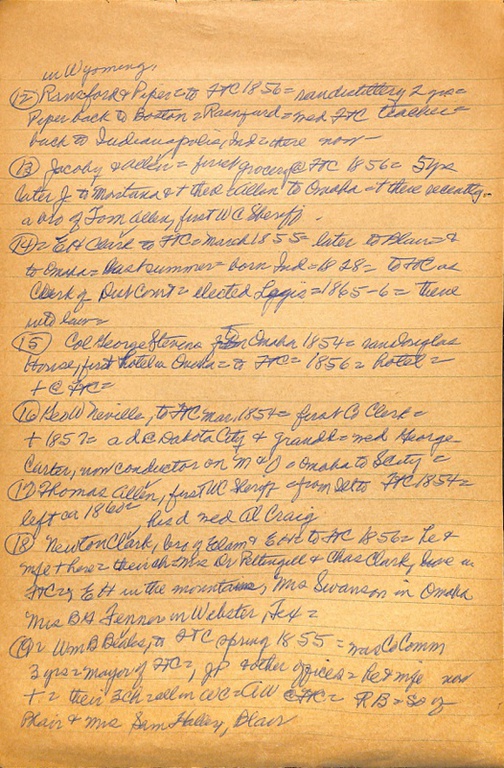 in Wyoming.
(12) Ransford & Piper = to FtC 1856 = ran distillery 2 yrs =
Piper back to Boston = Rainsford = med FtC teacher =
back to Indianapolis, Ind = there now -
(13) Jacoby & Allen = first grocery @ FtC 1856 = 5 yrs
later J to Montana & + there Allen to Omaha = + there recently -
a bro of Tom Allen, first WC Sheriff.
(14) = EH Clark to FtC = March 1855 = later to Blair = &
to Omaha = last summer = born Ind = 1828 = to FtC as
Clerk of Dist Court = elected Legis = 1865-6 = there
into law =
(15) Col George Stevens Omaha 1854 = ran Douglas
House, first hotel in Omaha = to FtC = 1856 = hotel =
+ @ FtC =
(16) Geo W Neville, to FtC Mar, 1854 = first Co Clerk =
+ 1857 = a d @ Dakota City & grandd = med George
Carter, now conductor on M & O = Omaha to S City =
(17) Thomas Allen, first WC Sheriff = from to FtC 1854 =
left cr 1860 = his d med Al Craig
(18) Newton Clark, bro of Elam & EH = to FtC 1856 = he &
wife + here = their ch = Mrs Dr Pettengill & Chas Clark, live in
FtC = EH in the mountains, Mrs Swanson in Omaha
Mrs BH Fenner in Webster, Tex =
(19) = Wm B Beales, to FtC spring 1855 = was Co Comm
3 yrs = mayor of FtC =, JP & other offices = he & wife now
+ = their 3 ch = all in WC = AW @ FtC = RB = so of
Blair & Mrs Sam Haley, Blair